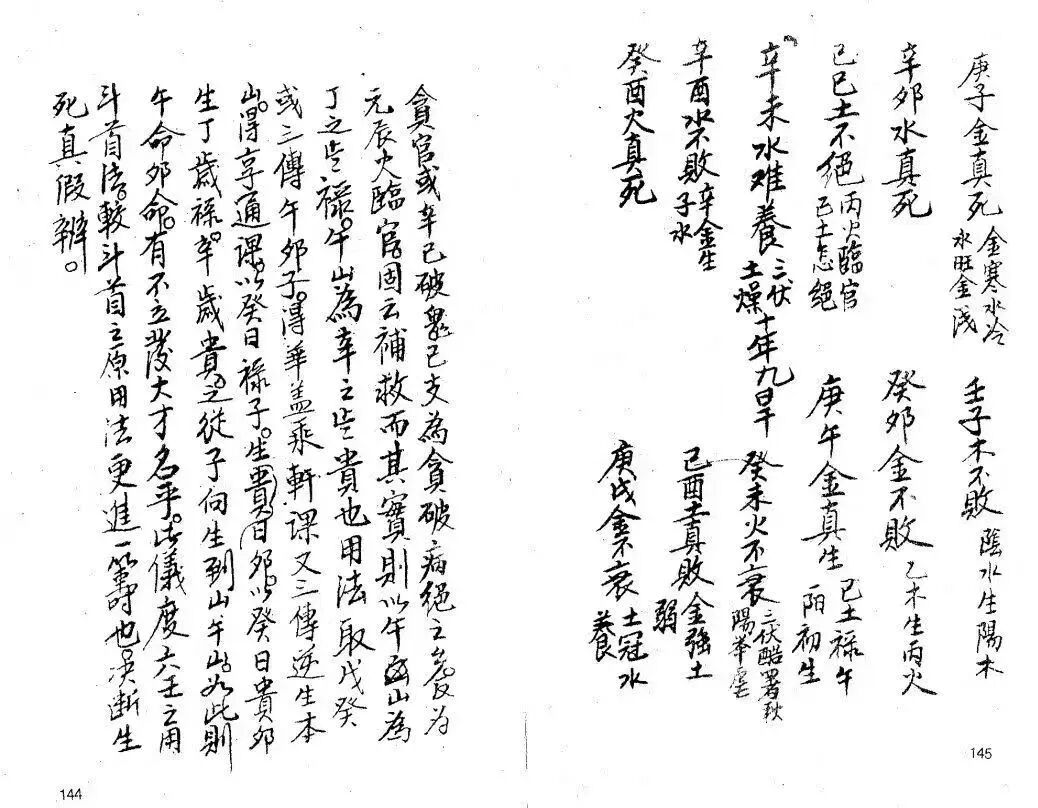 庚子金真死 金寒水冷 水旺金浅 壬子木不敗 陰水生陽木
辛卯水真死 癸卯金不敗 乙木生丙火
己巳土不絕 丙火臨官 己土怎絕 庚午金真生 己土禄午 一阳初生
辛未水难養 三伏土燥 十年九旱 癸未火不衰 三伏酷暑秋陽
辛酉水不敗 辛金生子水 己酉土真敗 金強土弱
癸酉火真死 庚戌金不衰 土冠水養
145
貪官或辛巳破鬼巳支為貪破病絕之處為
元辰火臨官固云補救而其實則以午山為
丁之禄午山為辛之貴也用法取戊癸
或三傳午卯子得華盖乘軒课又三傳逆生本
山得亨通课以癸日禄子生貴日卯以癸日貴卯
生丁歲禄辛歲貴之從子向生到山午如此則
午命卯命有不立發大才名乎此儀度六壬之用
斗首法較斗首之原用法更進一籌也决断生
死真假辨
144